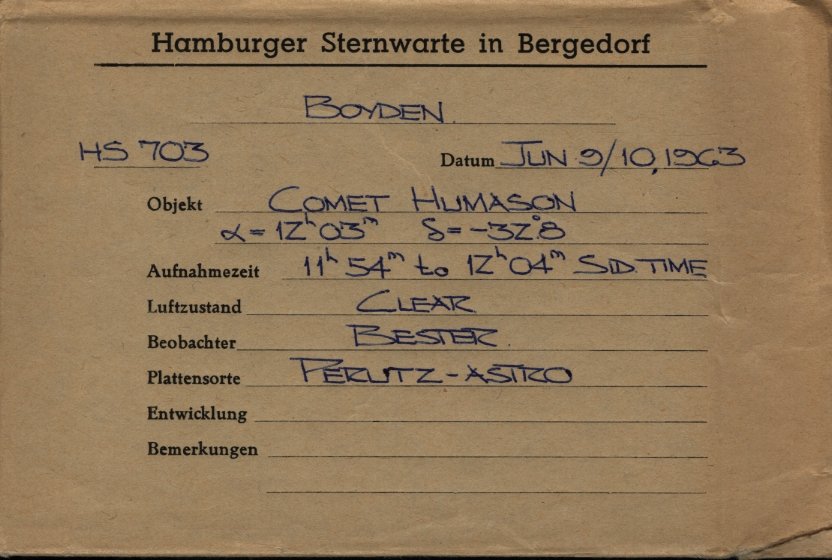 Hamburger Sternwarte in Bergedorf
BOYDEN
HS 703 Datum JUN 9/10, 1963
Objekt COMET HUMASON
α = 12ʰ 03ᵐ δ = -32°.8
Aufnahmezeit 11ʰ 54ᵐ to 12ʰ 04ᵐ SID TIME
Luftzustand CLEAR
Beobachter BESTER
Plattensorte PERUTZ-ASTRO
Entwicklung
Bemerkungen